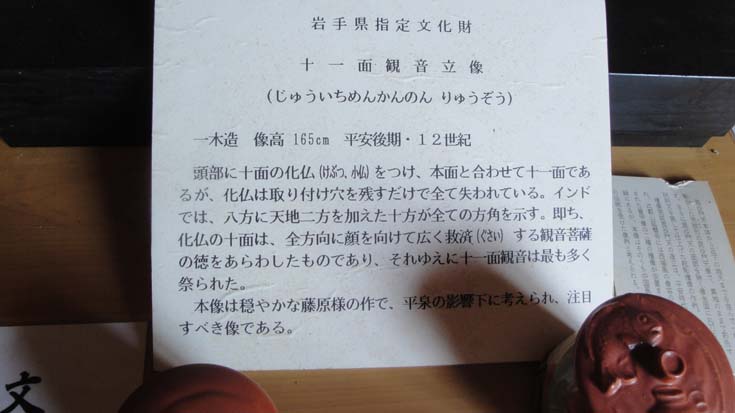 岩手県指定文化財
十一面観音立像
(じゅういちめんかんのん りゅうぞう)
一木造 像高 165cm 平安後期・12世紀
頭部に十面の化仏(けぶつ、小仏)をつけ、本面と合わせて十一面であ
るが、化仏は取り付け穴を残すだけで全て失われている。インド
では、八方に天地二方を加えた十方が全ての方角を示す。即ち、
化仏の十面は、全方向に顔を向けて広く救済(ぐさい)する観音菩薩
の徳をあらわしたものであり、それゆえに十一面観音は最も多く
祭られた。
本像は穏やかな藤原様の作で、平泉の影響下に考えられ、注目
すべき像である。
文